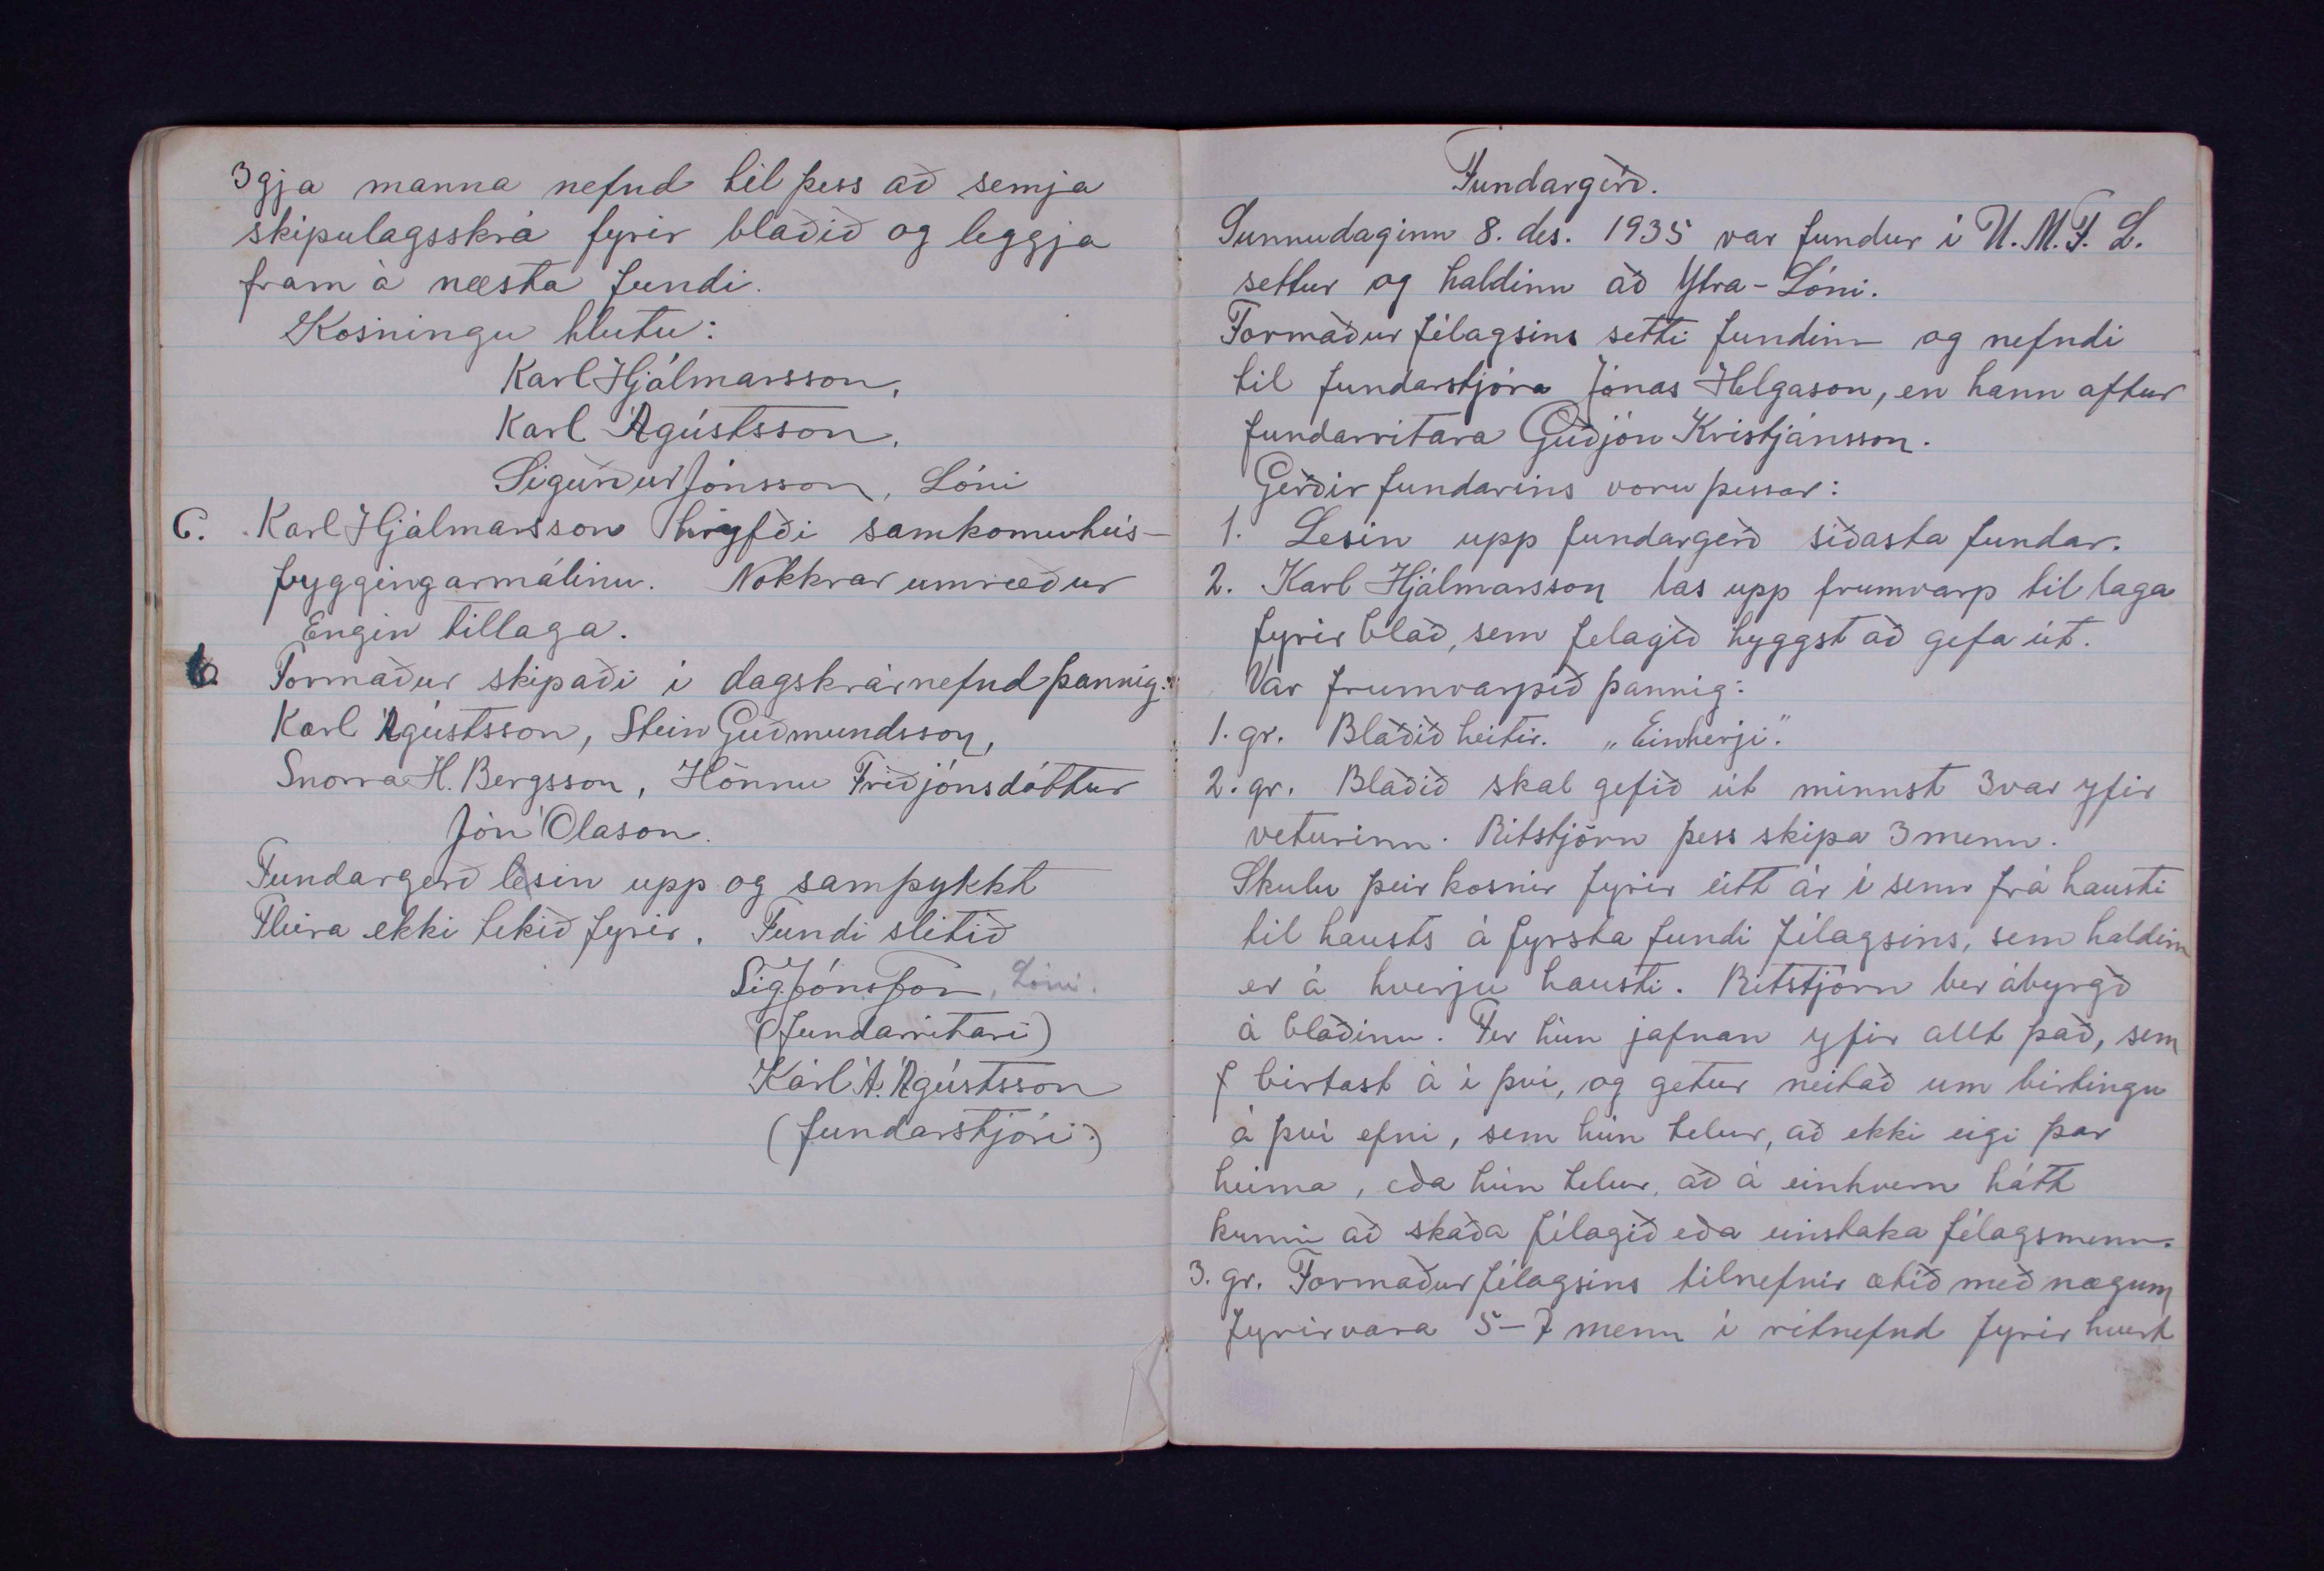 3gja manna nefnd til þess að semja
skipulagsskrá fyrir blaðið og leggja
fram á næsta fundi.
Kosningu hlutu:
Karl Hjálmarsson,
Karl Ágústsson,
Sigurður Jónsson, Lóni
C. Karl Hjálmarsson hreyfði samkomuhús-
byggingarmálinu. Nokkrar umræður
Engin tillaga.
6. Formaður skipaði í dagskrárnefnd þannig:
Karl Ágústsson, Stein Guðmundsson,
Snorra H. Bergsson, Hönnu Friðjónsdóttur
Jón Ólason.
Fundargerð lesin upp og samþykkt
Fleira ekki tekið fyrir. Fundi slitið
Sig. Jónsson, Lóni.
(fundarritari)
Karl Á. Ágústsson
(fundarstjóri)
Fundargerð.
Sunnudaginn 8. des. 1935 var fundur í U.M.F.L.
settur og haldinn að Ytra-Lóni.
Formaður félagsins setti fundinn og nefndi
til fundarstjóra Jónas Helgason, en hann aftur
fundarritara Guðjón Kristjánsson.
Gerðir fundarins voru þessar:
1. Lesin upp fundargerð síðasta fundar.
2. Karl Hjálmarsson las upp frumvarp til laga
fyrir blað, sem félagið hyggst að gefa út.
Var frumvarpið þannig:
1. gr. Blaðið heitir. „Einherji".
2. gr. Blaðið skal gefið út minnst 3var yfir
veturinn. Ritstjórn þess skipa 3 menn.
Skulu þeir kosnir fyrir eitt ár í senn frá hausti
til hausts á fyrsta fundi félagsins, sem haldinn
er á hverju hausti. Ritstjórn ber ábyrgð
á blaðinu. Fer hún jafnan yfir allt það, sem
birtast á í því, og getur neitað um birtingu
á því efni, sem hún telur, að ekki eigi þar
heima, eða hún telur, að á einhvern hátt
kunni að skaða félagið eða einstaka félagsmenn.
3. gr. Formaður félagsins tilnefnir ætíð með nægum
fyrirvara 5-7 menn í ritnefnd fyrir hvert